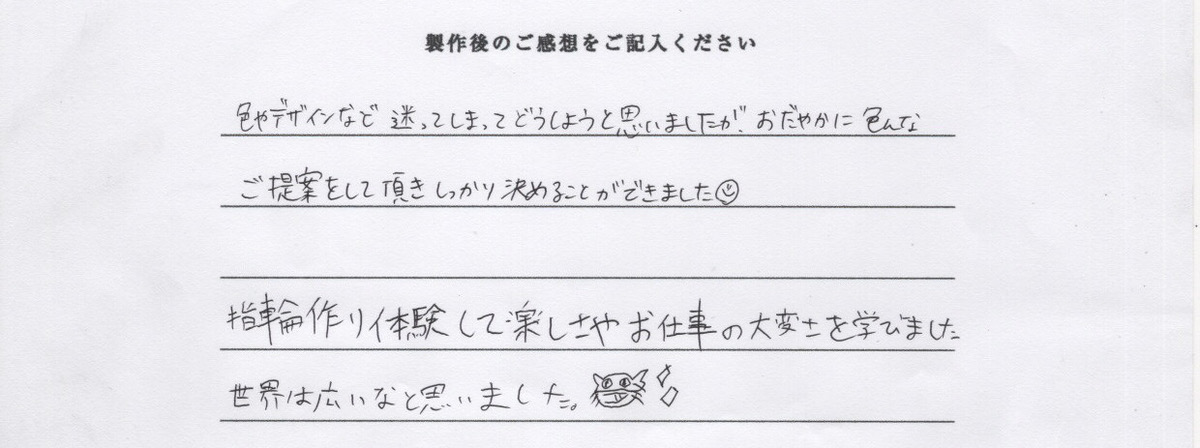 製作後のご感想をご記入ください
色やデザインなど迷ってしまってどうしようと思いましたが、おだやかに色んな
ご提案をして頂きしっかり決めることができました
指輪作り体験して楽しさやお仕事の大変さを学びました
世界は広いなと思いました。